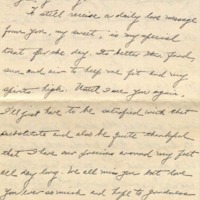 To still receive a daily love message
from you, my sweet, is my special
treat for the day. Its better than food,
and sure to help me fit and my
spirits high. Until I see you again,
I'll just have to be satisfied with that
substitute and also be quite thankful
that I have our precious around my feet
all day long. We all miss you but love
you ever so much and hope to goodness